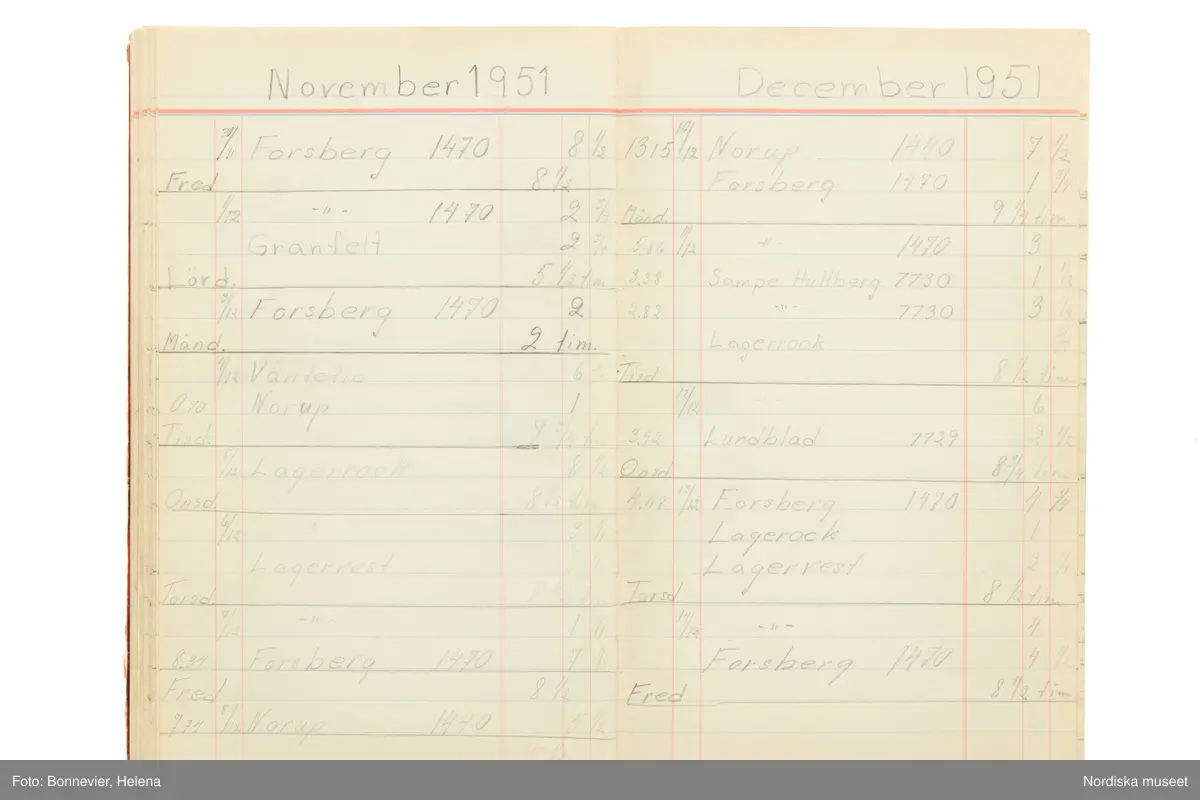 November 1951
30/11 Forsberg 1470 8 1/2
Fred 8 1/2
1/12 -"- 1470 2 3/4
Granfelt 2 3/4
Lörd. 5 1/2 tim.
3/12 Forsberg 1470 2
Månd. 2 tim.
4/12 6
Norup 1
Tisd. 7
5/12 Lagerrock 8 1/2
Onsd. 8 1/2 tim
6/12 " 3
Lagerrest
Torsd.
7/12 -"- 1
8.34 Forsberg 1470 7
Fred 8 1/2
8/12 Norup 1440 5 1/2
December 1951
13 15 10/12 Norup 1440 7 1/2
Forsberg 1470 1 3/4
Månd 9 1/4 tim
11/12 -"- 1470 3
3.38 Sampe Hultberg 7730 1 1/2
2.82 -"- 7730 3
Lagerrock
Tisd 8 1/2 tim
12/12 6
3.92 Lundblad 7729 2 1/2
Onsd 8 3/4 tim
4.48 13/12 Forsberg 1470 4 3/4
Lagerock 1
Lagerrest 2
Torsd 8 1/2 tim
14/12 -"- 4
Forsberg 1470 4 1/2
Fred 8 1/2 tim
Foto: Bonnevier, Helena
Nordiska museet